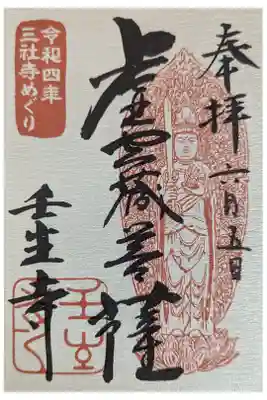 奉拝 六月五日
虚空蔵菩薩
令和四年
三社寺めぐり
壬生寺
壬生